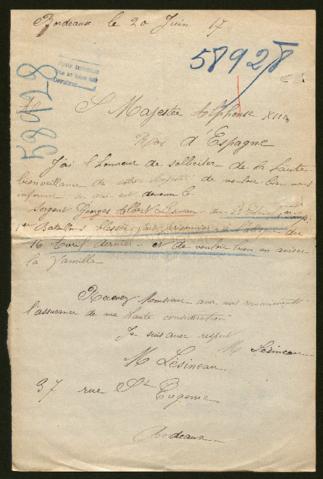 Bordeaux le 20 Juin 17
58928
58928
S Majestée Alphonse XIII
Roi d'Espagne
J'ai l'honneur de solliciter de la haute
bienveillance de votre Majesté de vouloir bien
informer est devenu le
Sergent Georges Albert
Bataillon blessé
16 Avril dernier et de vouloir bien en aviser
la famille.
Recevez Monsieur avec mes
l'assurance de ma haute considération
Je suis avec respect
M Lésineau
M Lésineau
37 rue St
Eugenie
Bordeaux